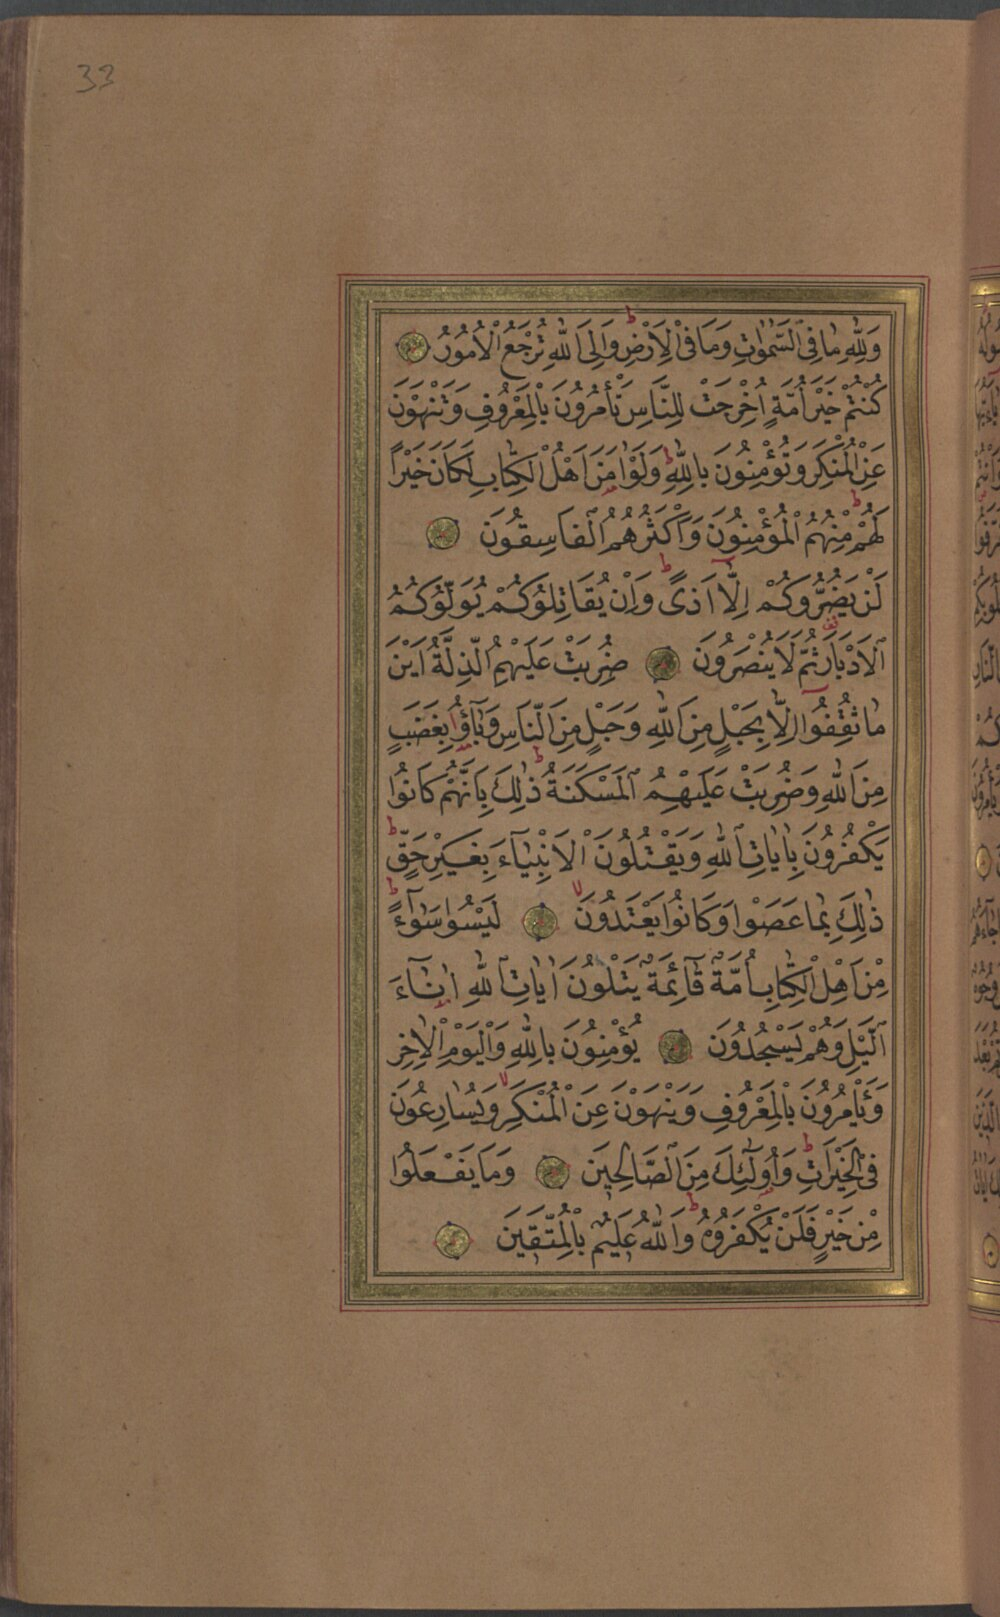 33
وَلِلّٰهِ مَا فِي السَّمٰوَاتِ وَمَا فِي الْاَرْضِ ط وَاِلَى اللّٰهِ تُرْجَعُ الْاُمُورُ
كُنْتُمْ خَيْرَ اُمَّةٍ اُخْرِجَتْ لِلنَّاسِ تَأْمُرُونَ بِالْمَعْرُوفِ وَتَنْهَوْنَ
عَنِ الْمُنْكَرِ وَتُؤْمِنُونَ بِاللّٰهِ ط وَلَوْ اٰمَنَ اَهْلُ الْكِتَابِ لَكَانَ خَيْرًا
لَهُمْ ط مِنْهُمُ الْمُؤْمِنُونَ وَاَكْثَرُهُمُ الْفَاسِقُونَ
لَنْ يَضُرُّوكُمْ اِلَّٓا اَذًى ط وَاِنْ يُقَاتِلُوكُمْ يُوَلُّوكُمُ
الْاَدْبَارَ قف ثُمَّ لَا يُنْصَرُونَ ضُرِبَتْ عَلَيْهِمُ الذِّلَّةُ اَيْنَ
مَا ثُقِفُٓوا اِلَّا بِحَبْلٍ مِنَ اللّٰهِ وَحَبْلٍ مِنَ النَّاسِ وَبَٓاؤُا بِغَضَبٍ
مِنَ اللّٰهِ وَضُرِبَتْ عَلَيْهِمُ الْمَسْكَنَةُ ط ذٰلِكَ بِاَنَّهُمْ كَانُوا
يَكْفُرُونَ بِاٰيَاتِ اللّٰهِ وَيَقْتُلُونَ الْاَنْبِيَٓاءَ بِغَيْرِ حَقٍّ ط
ذٰلِكَ بِمَا عَصَوْا وَكَانُوا يَعْتَدُونَ لا لَيْسُوا سَوَٓاءً ط
مِنْ اَهْلِ الْكِتَابِ اُمَّةٌ قَٓائِمَةٌ يَتْلُونَ اٰيَاتِ اللّٰهِ اٰنَٓاءَ
الَّيْلِ وَهُمْ يَسْجُدُونَ يُؤْمِنُونَ بِاللّٰهِ وَالْيَوْمِ الْاٰخِرِ
وَيَأْمُرُونَ بِالْمَعْرُوفِ وَيَنْهَوْنَ عَنِ الْمُنْكَرِ لا وَيُسَارِعُونَ
فِي الْخَيْرَاتِ ط وَاُولٰٓئِكَ مِنَ الصَّالِحِينَ وَمَا يَفْعَلُوا
مِنْ خَيْرٍ فَلَنْ يُكْفَرُوهُ ط وَاللّٰهُ عَلِيمٌ بِالْمُتَّقِينَ